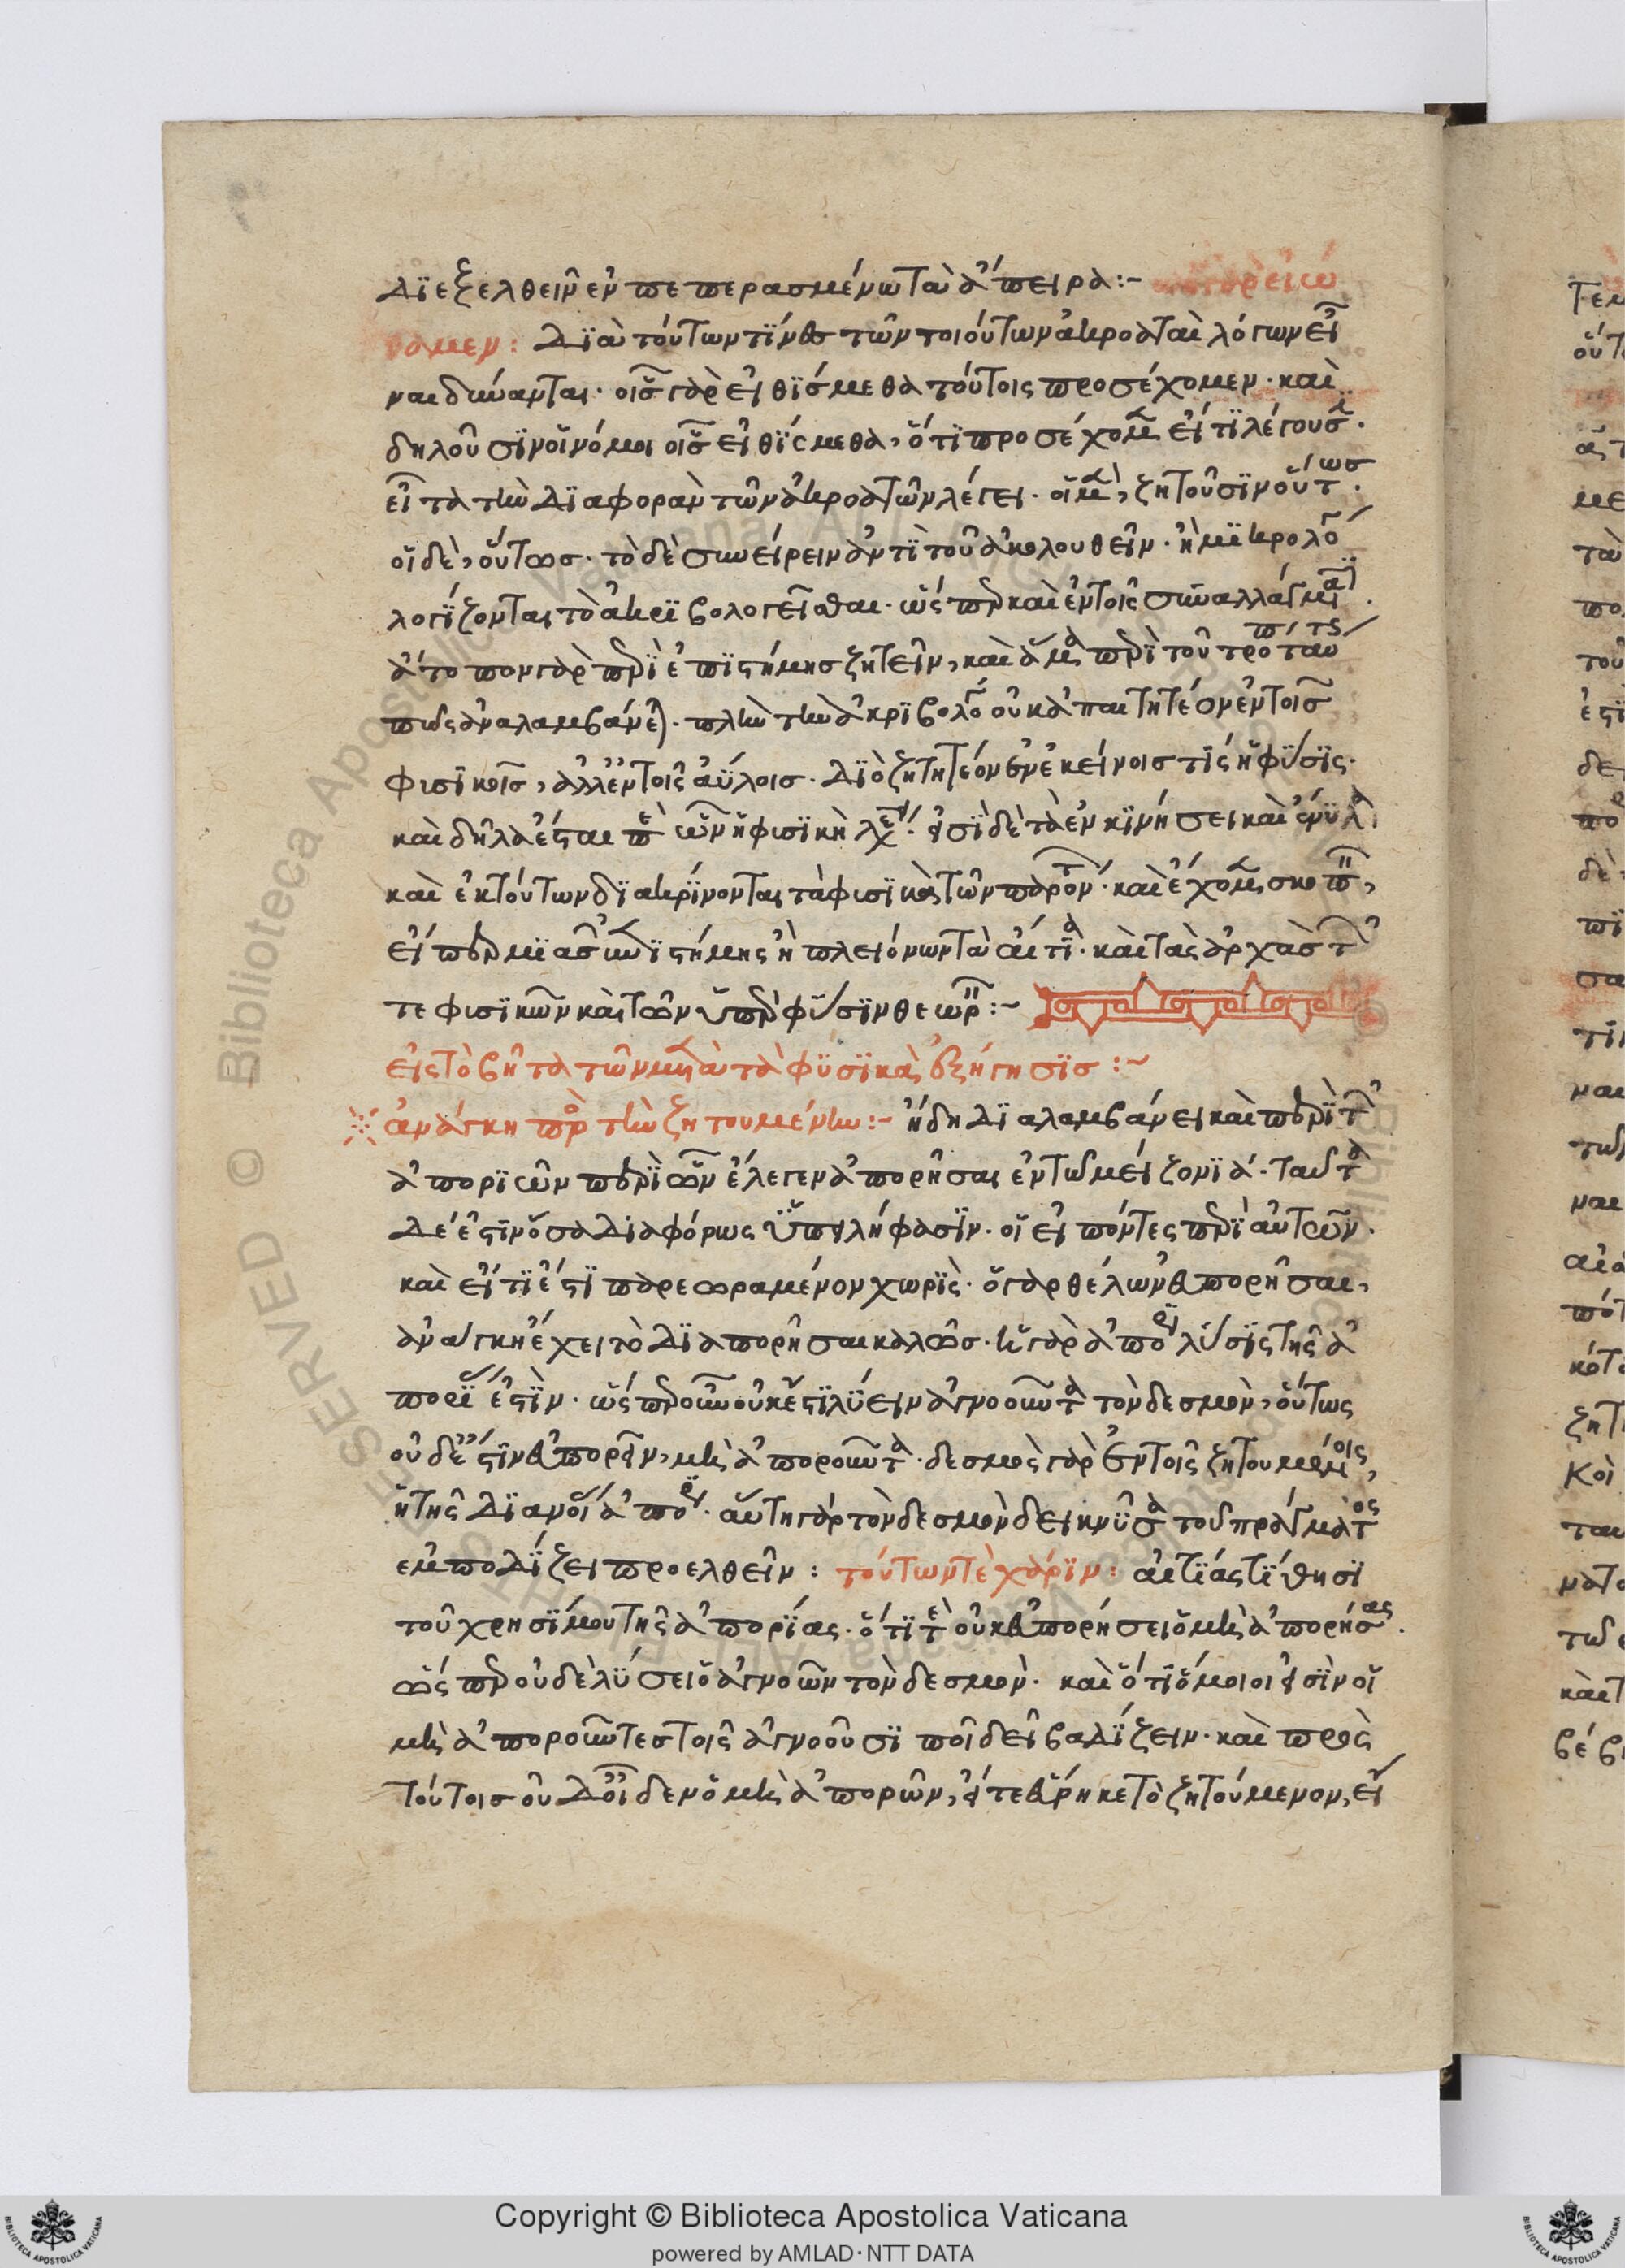 διεξελθεῖν ἐν πεπερασμένω τὰ ἄπειρα :-
θαμεν : διὰ τούτων τίνες τῶν τοιούτων ἀκροαταὶ λόγων εἶ
ναι δύνανται · οἷς γὰρ εἰθίσμεθα τούτοις προσέχομεν · καὶ
δηλοῦσιν οἱ νόμοι οἷς εἰθίσμεθα, ὅτι προσέχομ εἴ τι λέγουσ ·
εἶτα τὴν διαφορὰν τῶν ἀκροατῶν λέγει · οἱ μὲν, ζητοῦσιν οὕτως ·
οἱ δὲ, οὕτως · τὸ δὲ συνείρειν ἀντὶ τοῦ ἀκολουθεῖν · ἢ μικρολο
λογίζονται τὸ ἀκριβολογεῖσθαι · ὥσπερ καὶ ἐν τοῖς συναλλάγμα ·
ἄτοπον γὰρ περὶ ἐπιστήμης ζητεῖν, καὶ ἅμα περὶ τοῦ τρόπ
πῶς ἀναλαμβάνε · πλὴν τὴν ἀκριβολο οὐκ ἀπαιτητέον ἐν τοῖς
φισικοῖς, ἀλλ' ἐν τοῖς ἀΰλοις · διὸ ζητητέον ἐν ἐκείνοις τίς ἡ φύσις ·
καὶ δῆλα ἔσται π ὧν ἡ φισικὴ λχ · εἰσὶ δὲ τὰ ἐν κινήσει καὶ ἔνυλα
καὶ ἐκ τούτων διακρίνονται τὰ φισικὰ τῶν παρ · καὶ ἔχομ σκοπ,
εἴπερ μιᾶς ἐπιστήμης ἢ πλειόνων τὰ αἴτια · καὶ τὰς ἀρχὰς τ
τε φισικῶν καὶ τῶν ὑπὲρ φύσιν θεωρ :~
εἰς τὸ βῆτα τῶν μετὰ τὰ φυσικὰ ἐξήγησις :~
ἀνάγκη πρὸς τὴν ζητουμένην :- ἤδη διαλαμβάνει καὶ περὶ τ
ἀποριῶν περὶ ὧν ἔλεγεν ἀπορῆσαι ἐν τῶ μείζονι α · ταῦτα
δέ ἐστιν ὅσα διαφόρως ὑπειλήφασιν · οἱ εἰπόντες περὶ αὐτῶν ·
καὶ εἴ τι ἐστὶ παρεωραμένον χωρὶς · ὁ γὰρ θέλων εὐπορῆσαι,
ἀνάγκη ἔχει τὸ διαπορῆσαι καλῶς · ἡ γὰρ ἀπο λύσις τῆς ἀ
πορι ἐστὶν · ὥσπερ οὖν οὐκ ἔστι λύειν ἀγνοοῦντα τὸν δεσμὸν, οὕτως
οὐδὲ ἔστιν εὐπορεῖν, μὴ ἀποροῦντα · δεσμὸς γὰρ ἐν τοῖς ζητουμένοις,
ἡ τῆς διανοί ἀπο · αὕτη γὰρ τὸν δεσμὸν δεικνῦσα τοῦ πράγματος
ἐμποδίζει προελθεῖν : τούτων τὲ χάριν : αἰτίας τίθησι
τοῦ χρησίμου τῆς ἀπορίας · ὅτι τε οὐκ εὐπορήσει ὁ μὴ ἀπορήσας ·
ὥσπερ οὐδὲ λύσει ὁ ἀγνοῶν τὸν δεσμὸν · καὶ ὅτι ὅμοιοι εἰσὶν οἱ
μὴ ἀποροῦντες τοῖς ἀγνοοῦσι ποῖ δεῖ βαδίζειν · καὶ πρὸς
τούτοις οὐδ' οἶδεν ὁ μὴ ἀπορῶν, εἴτε εὕρηκε τὸ ζητούμενον, εἴ
Copyright © Biblioteca Apostolica Vaticana
powered by AMLAD·NTT DATA